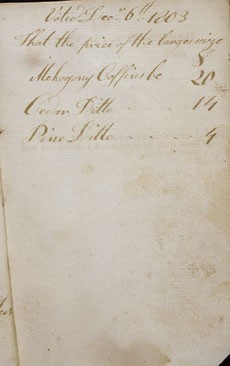 Voted Decr 6th 1803
That the price of the larger size
$
Mahogany Coffins be 20
Cedar Ditto 14
Pine Ditto 4